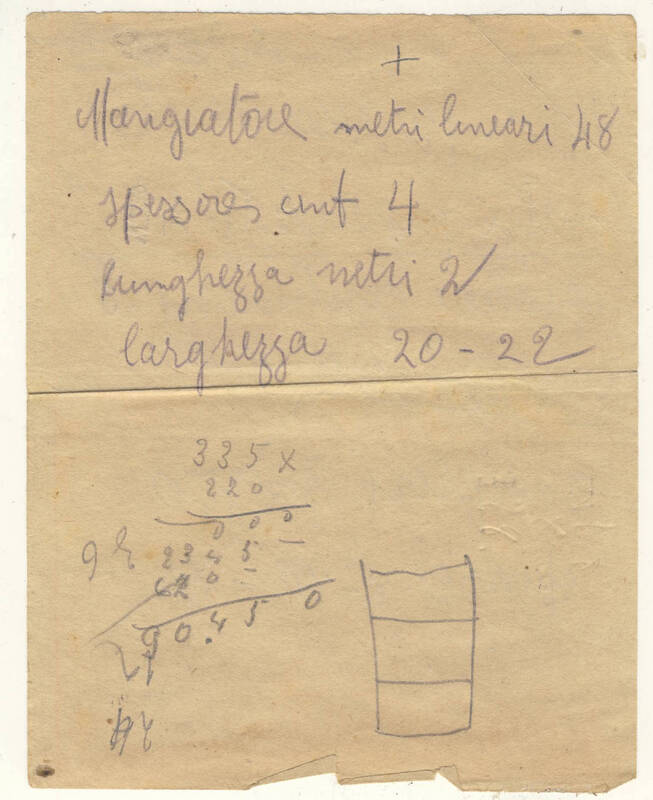 +
Mangiatoie metri lineari 48
spessore cmt 4
lunghezza metri 2
larghezza 20-22
335 x
220
0 0 0
2345
90.450